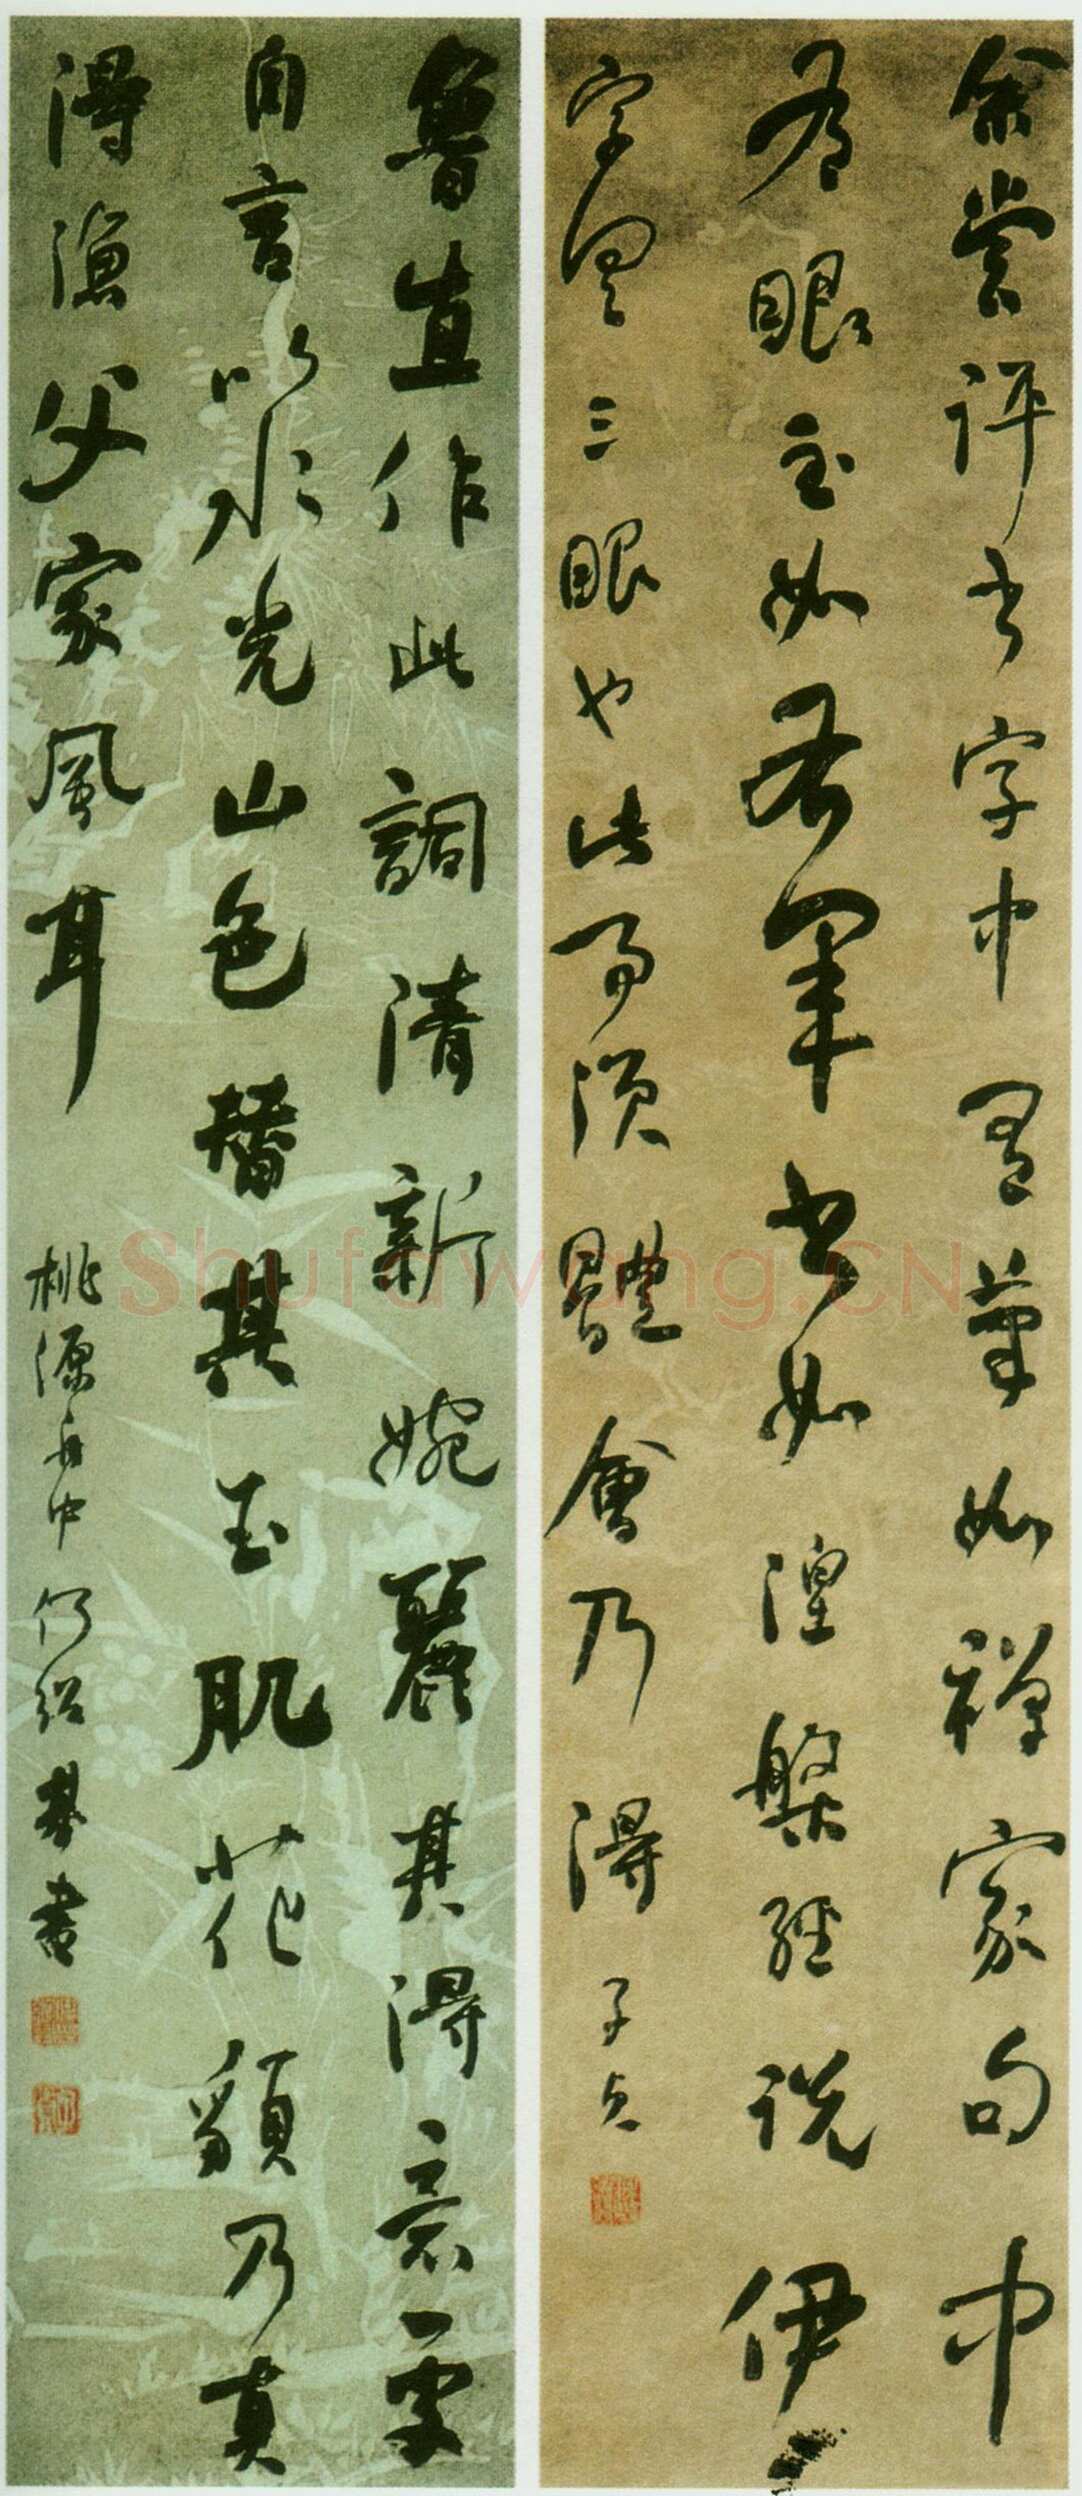 余嘗評書字中有筆如禪家句中
有眼至如右軍書如涅槃經說伊
字具三眼也此事須體會乃得
子貞
魯直作此詞清新婉麗其得意
自言以水光山色替其玉肌花貌乃真
得漁父家風耳
桃源舟中何紹基書
Shufawang.CN